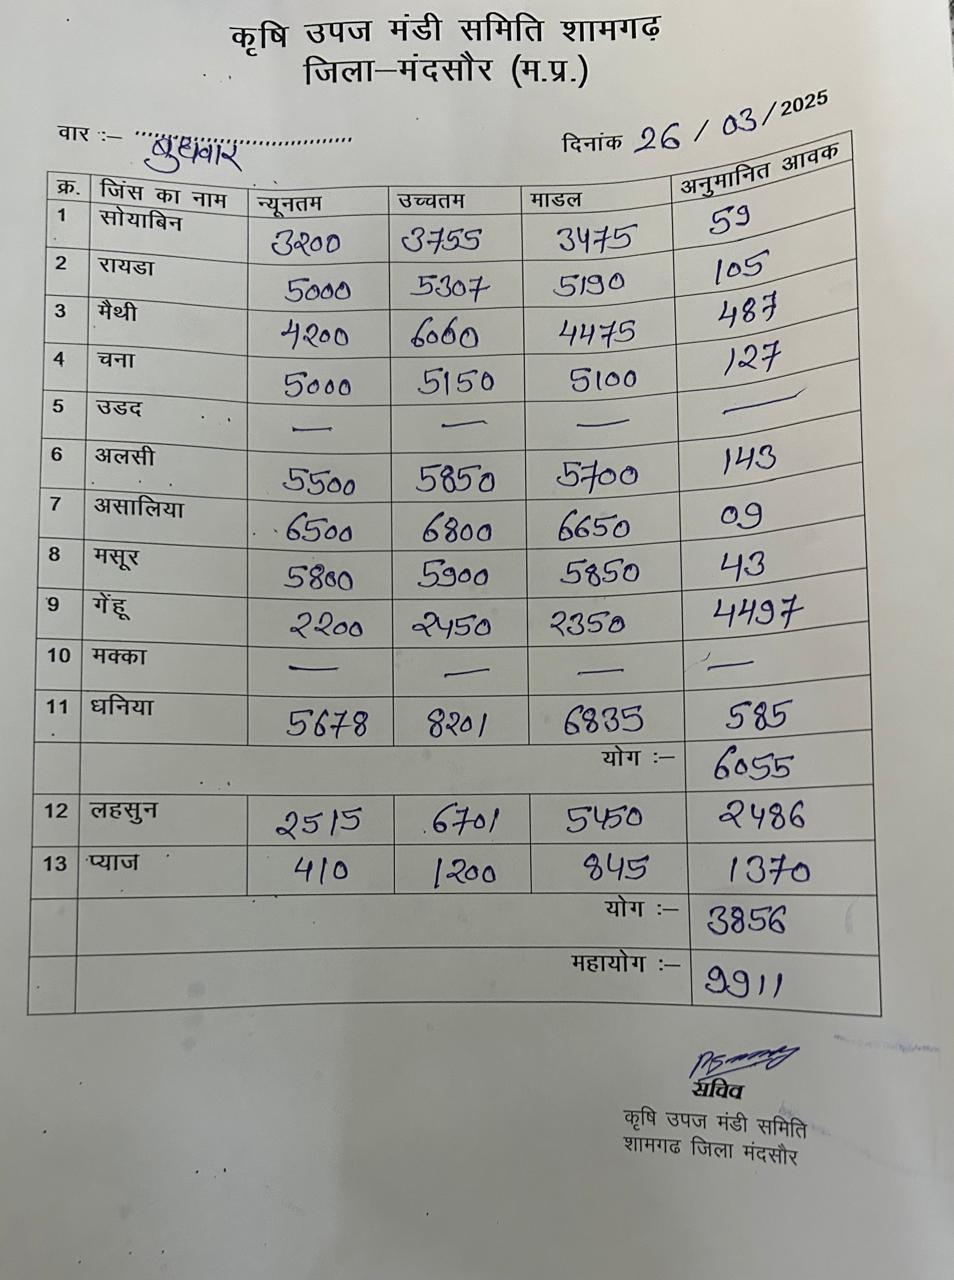 कृषि उपज मंडी समिति शामगढ़
जिला–मंदसौर (म.प्र.)
वार :– बुधवार दिनांक 26/03/2025
क्र. जिंस का नाम न्यूनतम उच्चतम माडल अनुमानित आवक
1 सोयाबिन 3200 3755 3475 59
2 रायडा 5000 5307 5190 105
3 मैथी 4200 6060 4475 487
4 चना 5000 5150 5100 127
5 उडद — — — —
6 अलसी 5500 5850 5700 143
7 असालिया 6500 6800 6650 09
8 मसूर 5800 5900 5850 43
9 गेंहू 2200 2450 2350 4497
10 मक्का — — — —
11 धनिया 5678 8201 6835 585
योग :– 6055
12 लहसुन 2515 6701 5450 2486
13 प्याज 410 1200 845 1370
योग :– 3856
महायोग :– 9911
सचिव
कृषि उपज मंडी समिति
शामगढ जिला मंदसौर